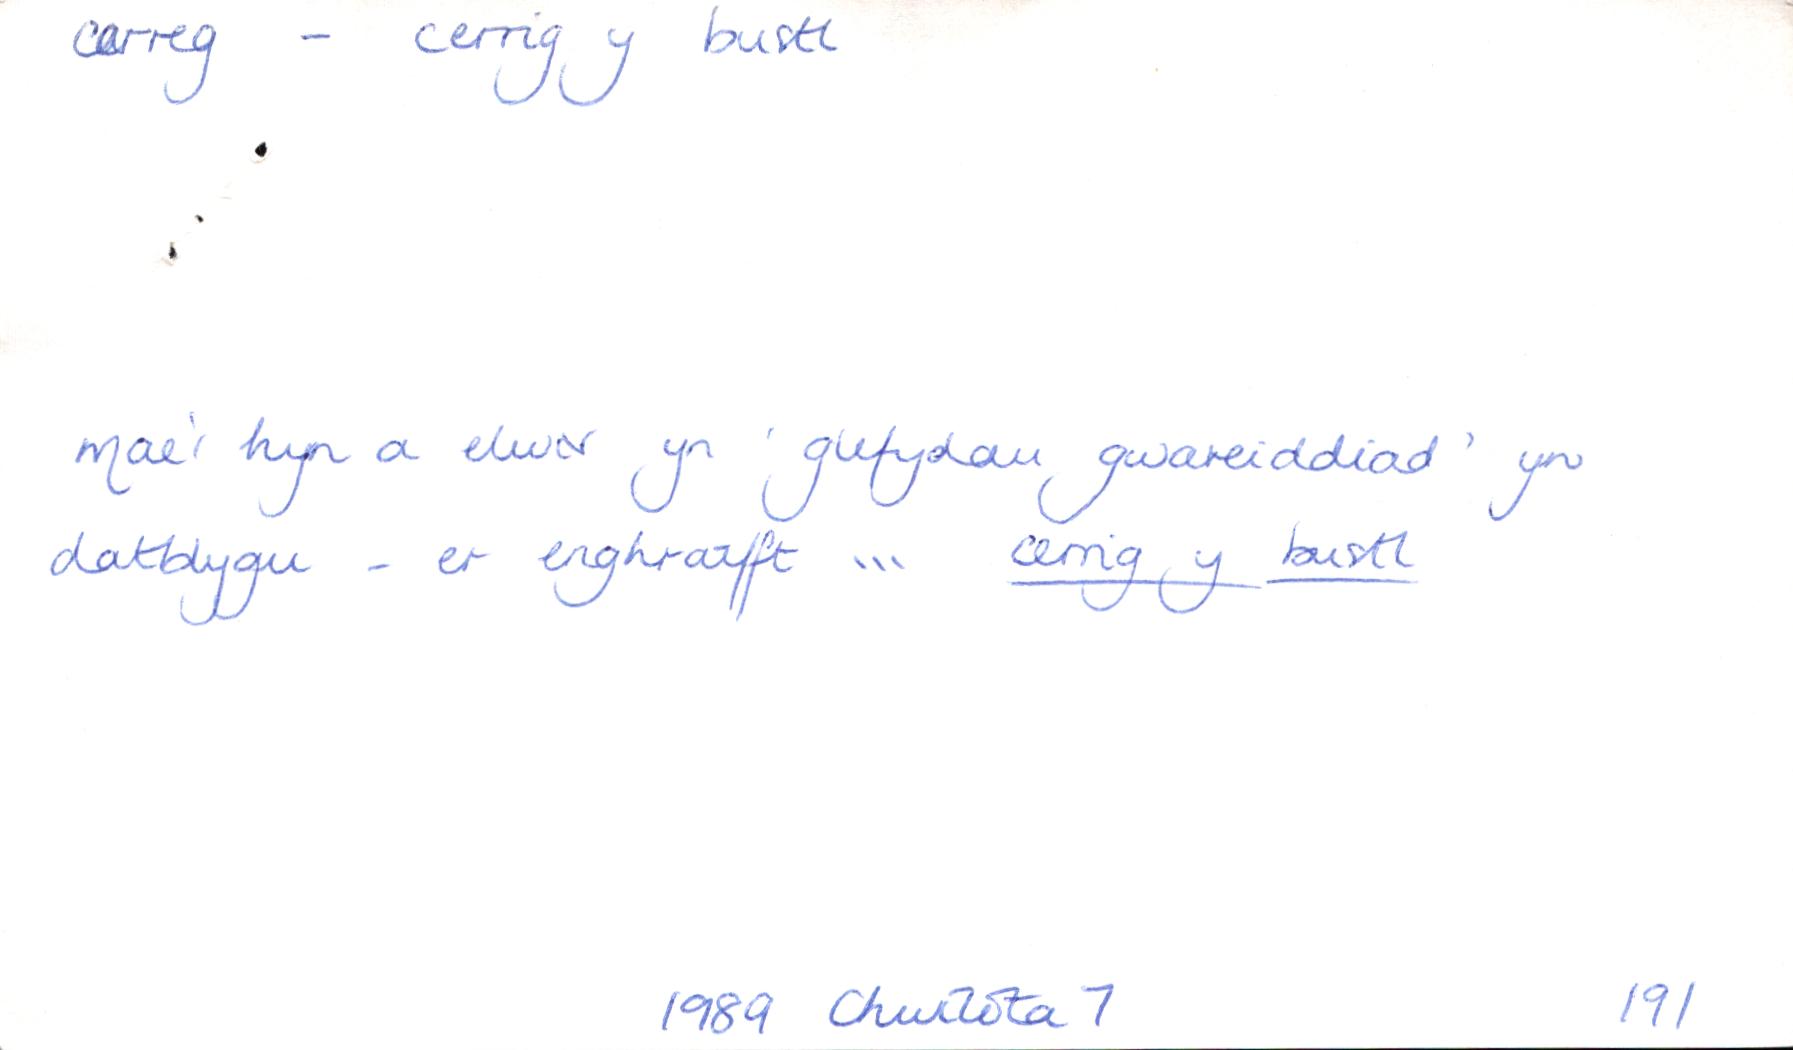 carreg - cerrig y bustl
mae'r hyn a elwir yn 'glefydau gwareiddiad' yn
datblygu - er enghraifft ... cerrig y bustl
1989 Chwilota 7 191